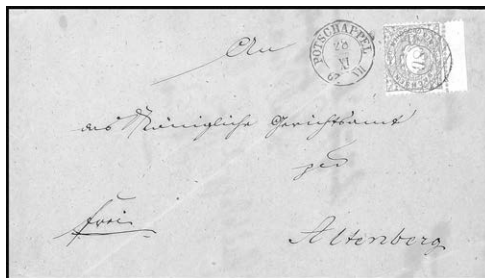 An
POTSCHAPPEL
28
XI
67
das Königliche Gerichtsamt
zu
frei
Altenberg